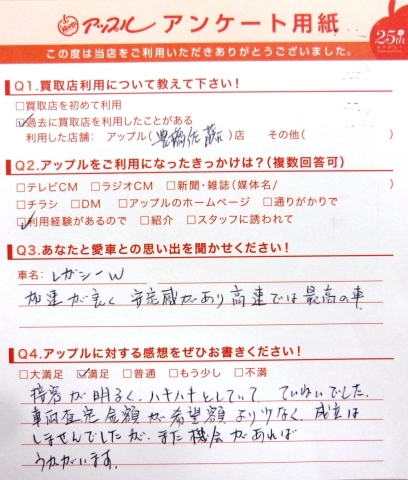 アップル アンケート用紙
25th
この度は当店をご利用いただきありがとうございました。
Q1.買取店利用について教えて下さい!
□買取店を初めて利用
☑過去に買取店を利用したことがある
利用した店舗: アップル(豊橋佐藤)店 その他( )
Q2.アップルをご利用になったきっかけは?(複数回答可)
□テレビCM □ラジオCM □新聞・雑誌(媒体名/ )
□チラシ □DM □アップルのホームページ □通りがかりで
☑利用経験があるので □紹介 □スタッフに誘われて
Q3.あなたと愛車との思い出を聞かせてください!
車名: レガシーW
加速が良く 安定感があり高速では最高の車
Q4.アップルに対する感想をぜひお書きください!
□大満足 ☑満足 □普通 □もう少し □不満
接客が明るく、ハキハキとしていて、ていねいでした。
車両査定金額が希望額より少なく、成立は
しませんでしたが、また機会があれば
うかがいます。